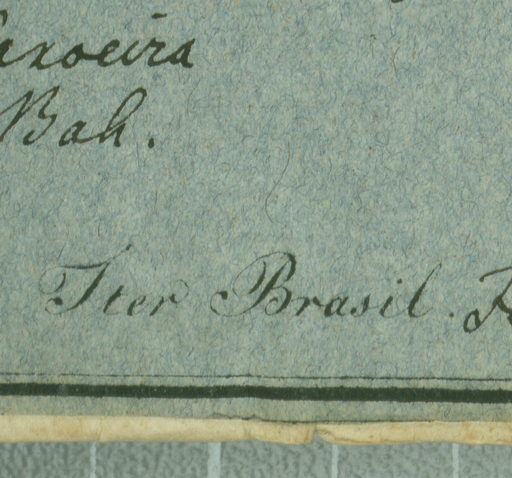 axoeira
Bah.
Iter Brasil.